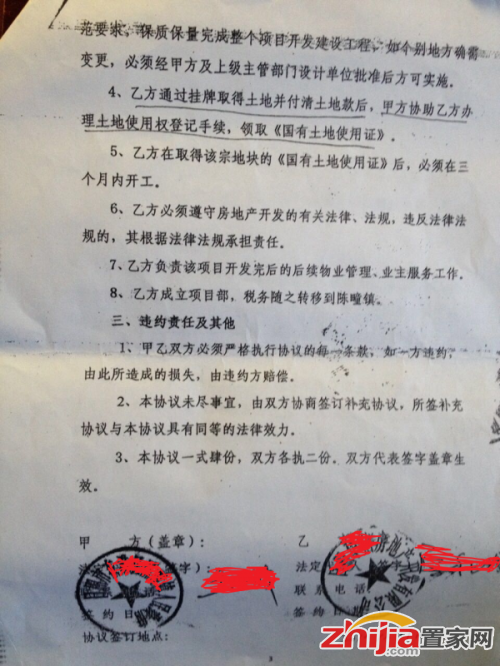 范要求，保质保量完成整个项目开发建设工程，如个别地方确需
变更，必须经甲方及上级主管部门设计单位批准后方可实施。
4、乙方通过挂牌取得土地并付清土地款后，甲方协助乙方办
理土地使用权登记手续，领取《国有土地使用证》。
5、乙方在取得该宗地块的《国有土地使用证》后，必须在三
个月内开工。
6、乙方必须遵守房地产开发的有关法律、法规，违反法律法
规的，其根据法律法规承担责任。
7、乙方负责该项目开发完后的后续物业管理、业主服务工作。
8、乙方成立项目部，税务随之转移到陈疃镇。
三、违约责任及其他
1、甲乙双方必须严格执行协议的每一条款，如一方违约，
由此所造成的损失，由违约方赔偿。
2、本协议未尽事宜，由双方协商签订补充协议，所签补充
协议与本协议具有同等的法律效力。
3、本协议一式肆份，双方各执二份。双方代表签字盖章生
效。
甲 方（盖章）：
乙
字）：
法定 人
电话
联系电话
签约日
签约日
协议签订地点：
3
zhijia置家网